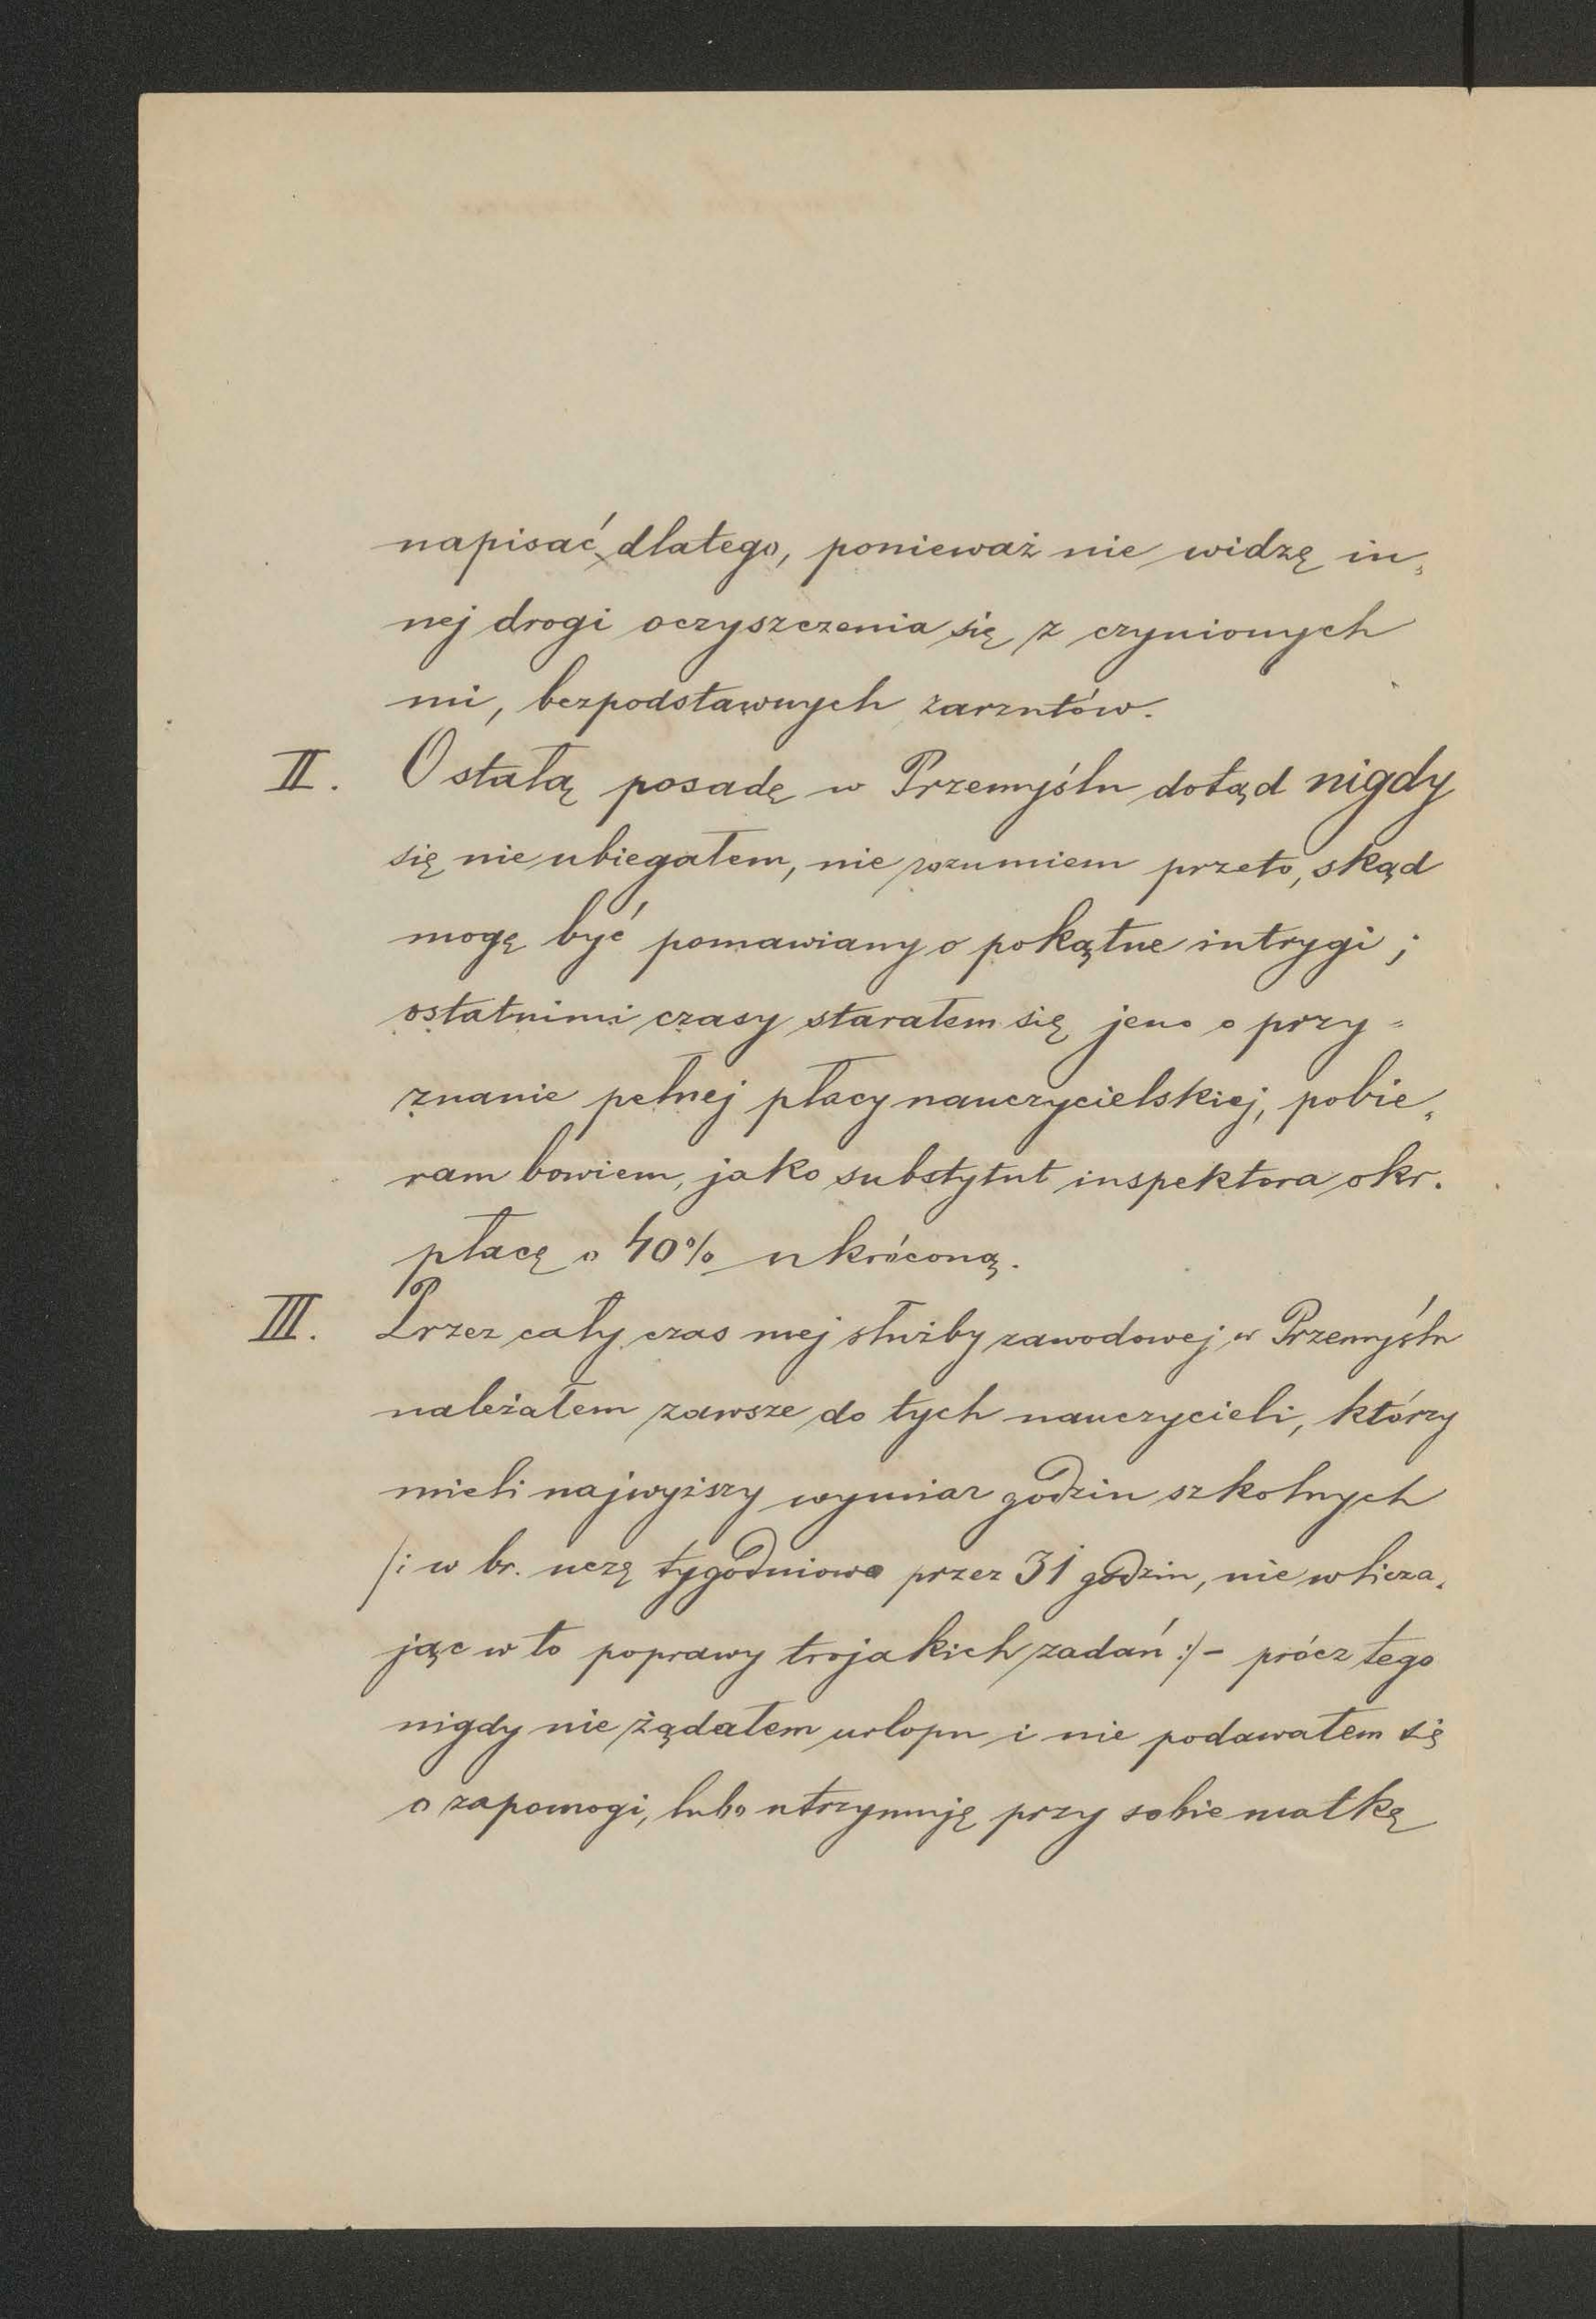 napisać dlatego, ponieważ nie widzę in=
nej drogi oczyszczenia się z czynionych
mi, bezpodstawnych zarzutów.
II. O stałą posadę w Przemyślu dotąd nigdy
się nie ubiegałem, nie rozumiem przeto, skąd
mogę być pomawiany o pokątne intrygi;
ostatnimi czasy starałem się jeno o przy=
znanie pełnej płacy nauczycielskiej, pobie=
ram bowiem, jako substytut inspektora okr.
płacę o 40% ukróconą.
III. Przez cały czas mej służby zawodowej w Przemyślu
należałem zawsze do tych nauczycieli, którzy
mieli najwyższy wymiar godzin szkolnych
/: w br. uczę tygodniowo przez 31 godzin, nie wlicza=
jąc w to poprawy trojakich zadań :/ - prócz tego
nigdy nie żądałem urlopu i nie podawałem się
o zapomogi, lubo utrzymuję przy sobie matkę